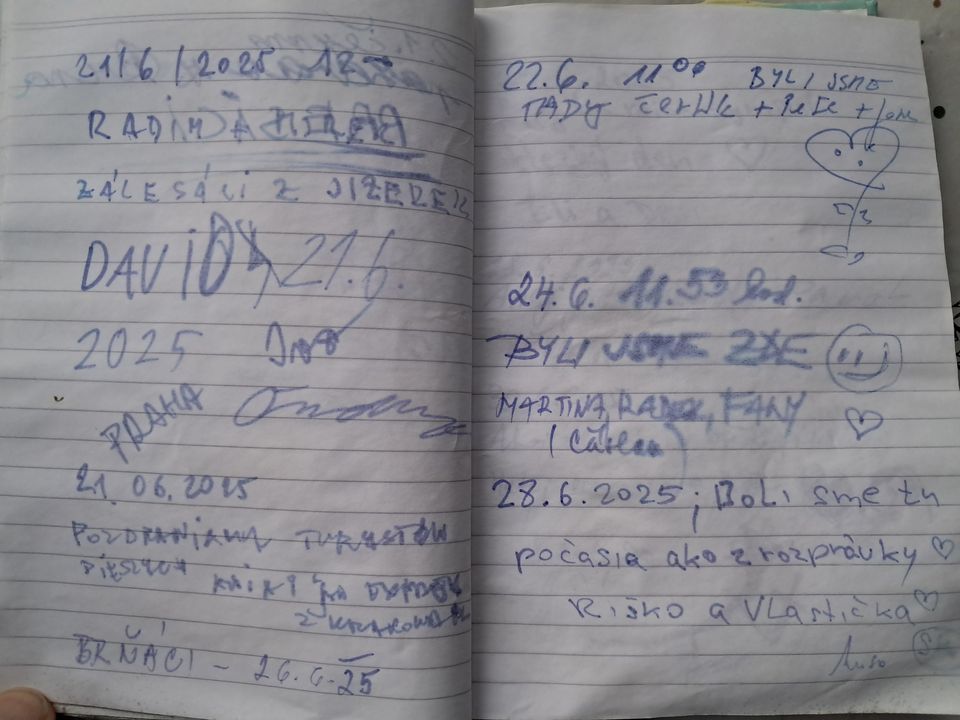 21/6/2025 12
RADIM A MIREK
ZÁLESÁCI Z JIZEREK
DAVID 21.6.
2025
PRAHA
21.06.2025
POZDRAWIAMY TURYSTÓW
PIESZYCH
Z KRAKOWA
BRŇÁCI - 26.6.25
22.6. 11⁰⁰ BYLI JSME
TADY
24.6. 11.53 hod.
BYLI JSME ZDE
MARTINA, RADEK, FANY
28.6.2025; Boli sme tu
počasia ako z rozprávky ♡
Riško a Vlastička ♡